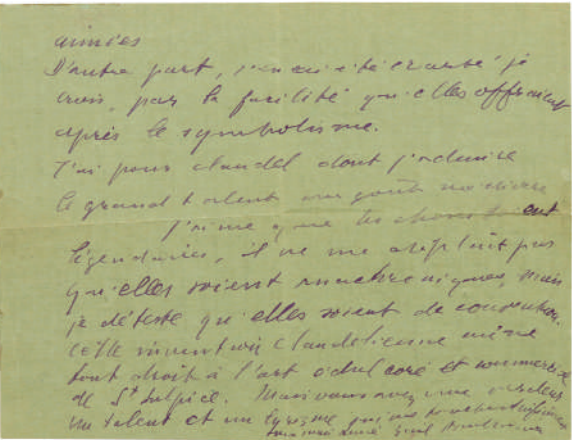 aimées
D'autre part, j'en ai été écarté je
crois, par la facilité qu'elles offraient
après le symbolisme.
J'ai pour Claudel dont j'admire
le grand talent un goût
J'aime que les choses soient
légendaires, il ne me déplaît pas
qu'elles soient anachroniques, mais
je déteste qu'elles soient de convention.
Cette invention Claudelienne mène
tout droit à l'art édulcoré et commercial
de St Sulpice. Mais vous avez une
un talent et un lyrisme qui me